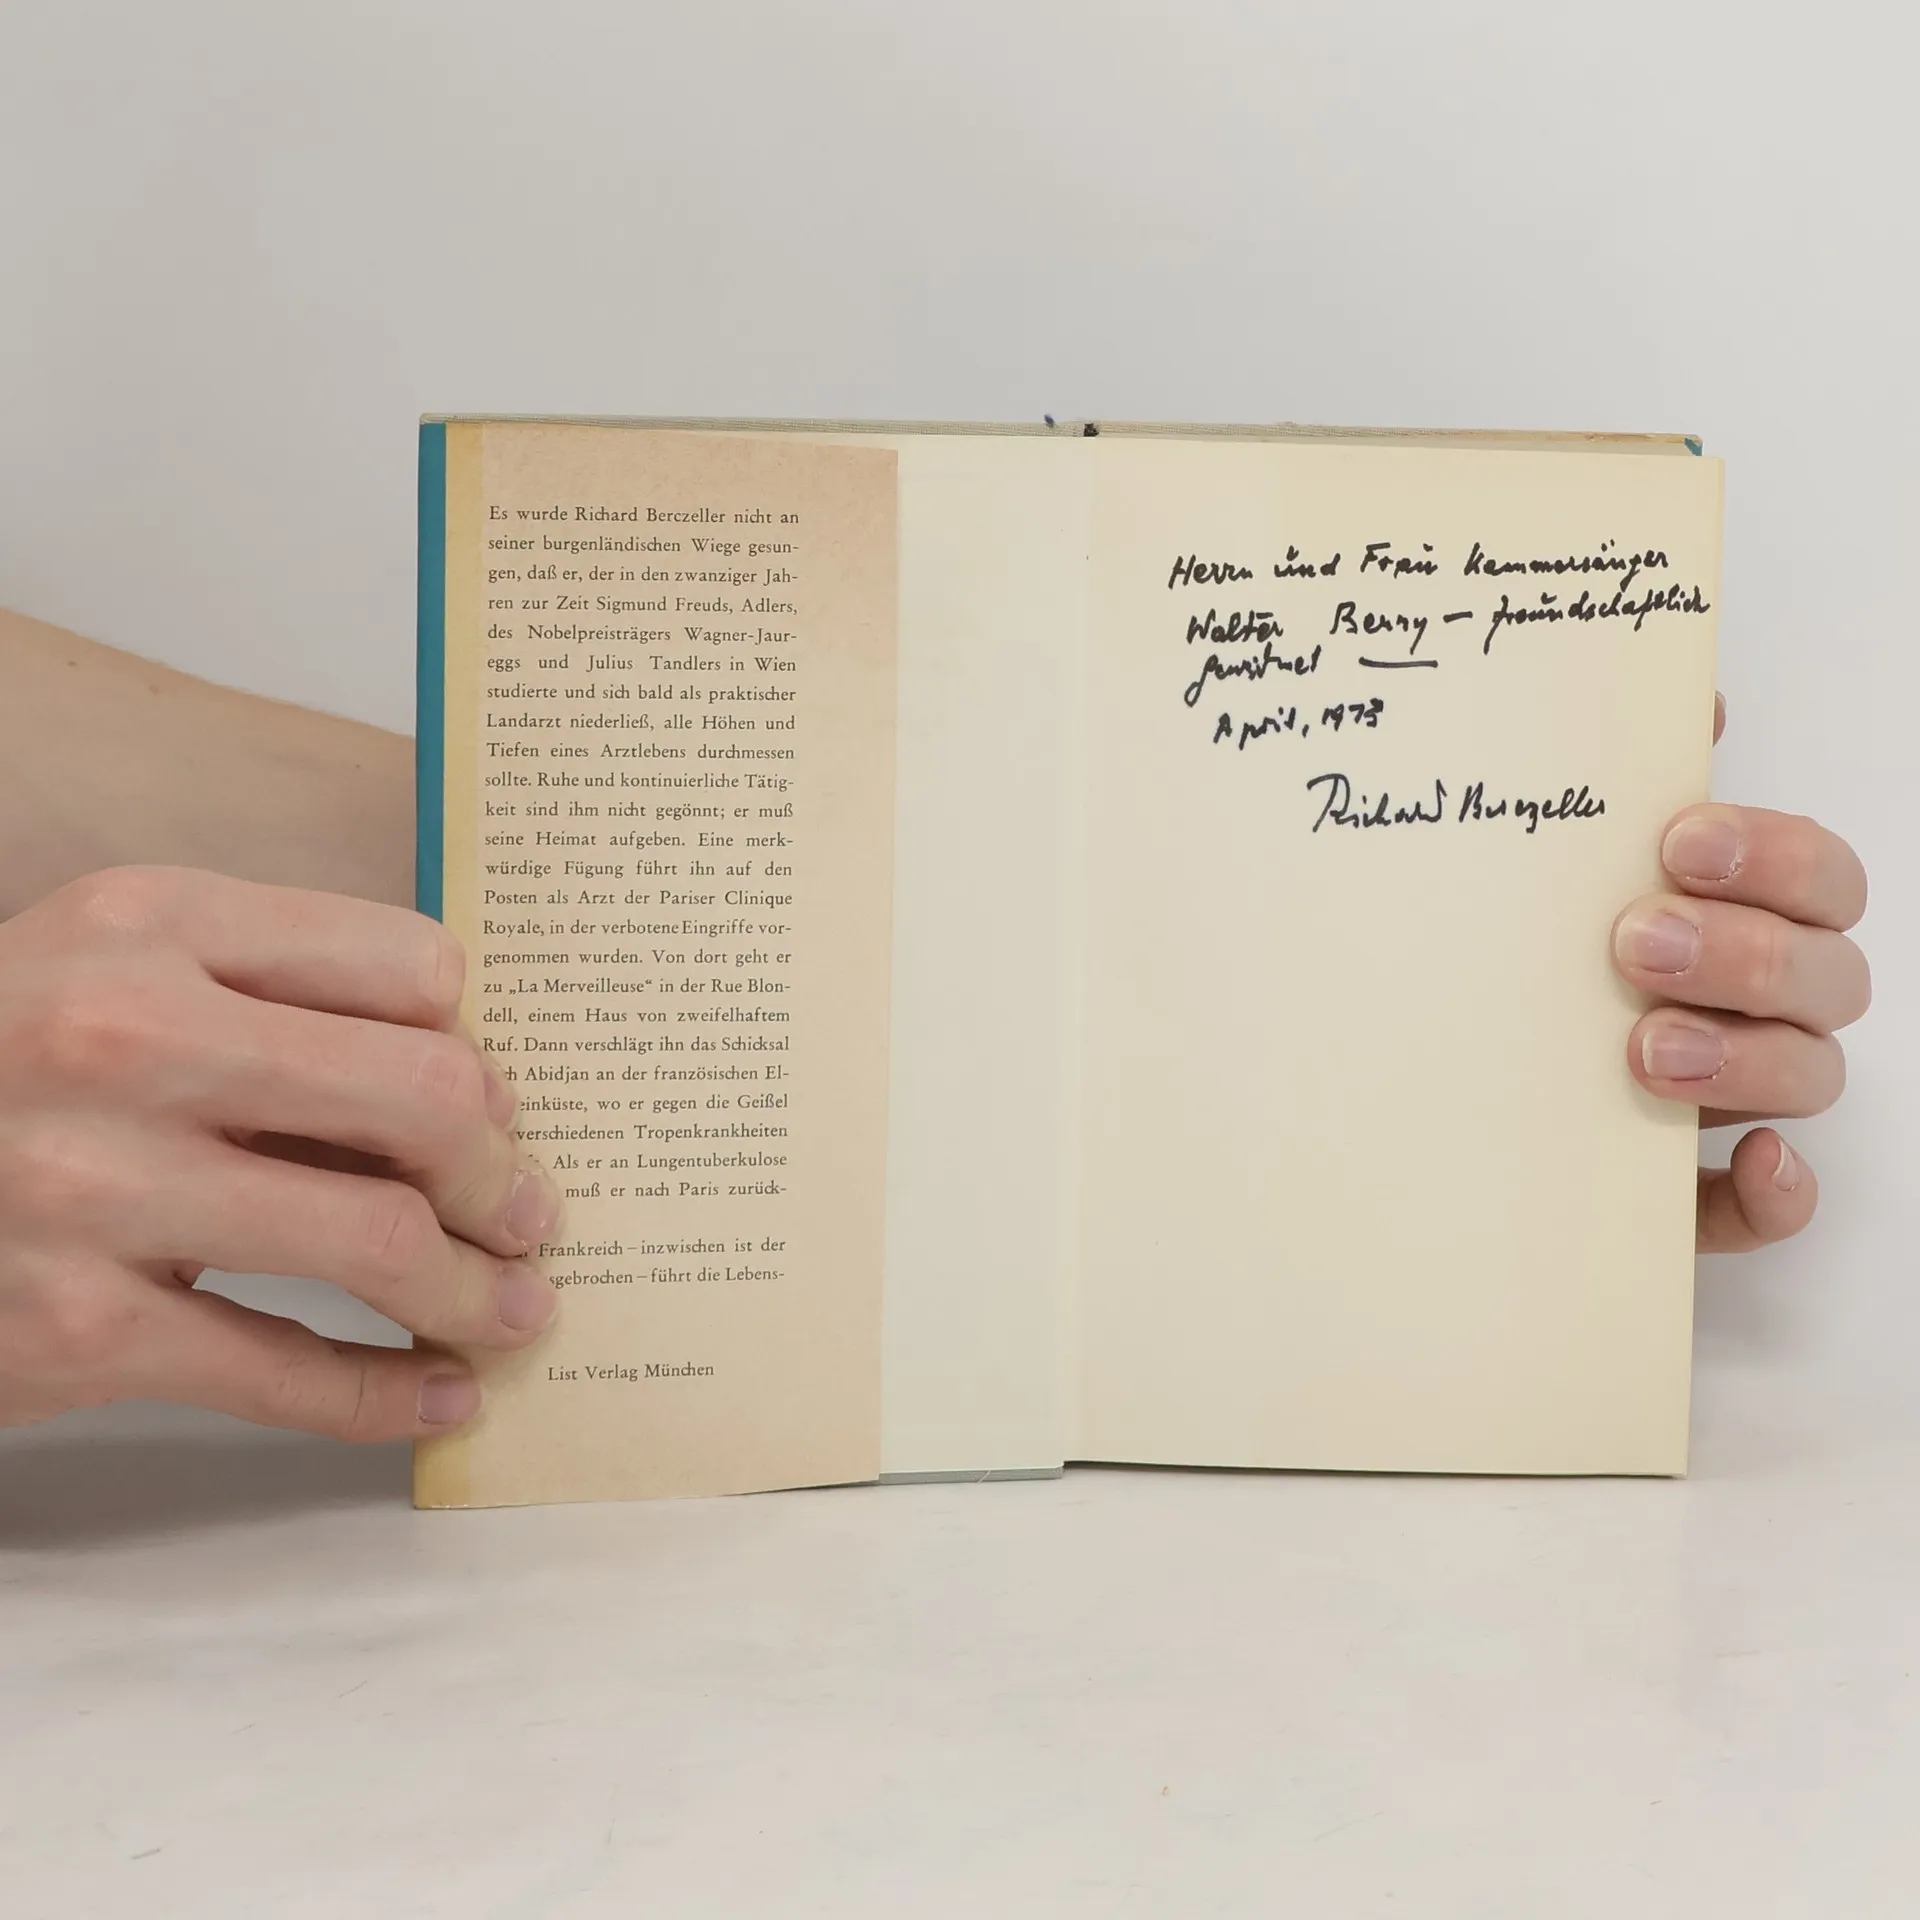 Es wurde Richard Berczeller nicht an
seiner burgenländischen Wiege gesun-
gen, daß er, der in den zwanziger Jah-
ren zur Zeit Sigmund Freuds, Adlers,
des Nobelpreisträgers Wagner-Jaur-
eggs und Julius Tandlers in Wien
studierte und sich bald als praktischer
Landarzt niederließ, alle Höhen und
Tiefen eines Arztlebens durchmessen
sollte. Ruhe und kontinuierliche Tätig-
keit sind ihm nicht gegönnt; er muß
seine Heimat aufgeben. Eine merk-
würdige Fügung führt ihn auf den
Posten als Arzt der Pariser Clinique
Royale, in der verbotene Eingriffe vor-
genommen wurden. Von dort geht er
zu „La Merveilleuse“ in der Rue Blon-
dell, einem Haus von zweifelhaftem
Ruf. Dann verschlägt ihn das Schicksal
ch Abidjan an der französischen El-
einküste, wo er gegen die Geißel
verschiedenen Tropenkrankheiten
Als er an Lungentuberkulose
muß er nach Paris zurück-
Frankreich – inzwischen ist der
sgebrochen – führt die Lebens-
List Verlag München
Herrn und Frau Kammersänger
Walter Berry — freundschaftlich
gewidmet —
April, 1973
Richard Berczeller